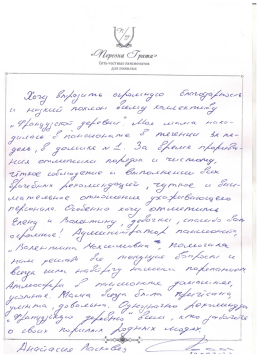 «Персона Грата»
Сеть частных пансионатов
для пожилых
Хочу выразить огромную благодарность
и низкий поклон всему коллективу
„Французской деревни“. Моя мама нахо-
дилась в пансионате в течении
, в домике №1. За время пребыва-
ния отметили порядок и чистоту,
чёткое соблюдение и выполнение всех
врачебных рекомендаций, чуткое и вни-
мательное отношение ухаживающего
персонала. Особенно хочу отметить
Елену и Валентину, девочки, спасибо вам
огромное! Администратор пансионата,
„Валентина Николаевна“, помогала
нам решать все текущие вопросы и
всегда шла навстречу нашим
Атмосфера в пансионате домашняя,
уютная. Мама
довольны.
„Французскую деревню“ всем, кто заботится
о своих пожилых родных людях.
Анастасия